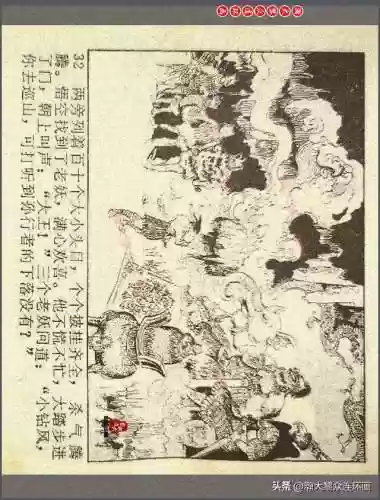 32 两旁列着百十个大小头目，个个披挂齐全，杀气腾
腾。悟空找到了老妖，满心欢喜。他不慌不忙，大踏步进
了门，朝上叫声：“大王！”三个老妖问道：“小钻风，
你去巡山，可打听到孙行者的下落没有？”
头条 @瀚大黎众连环画